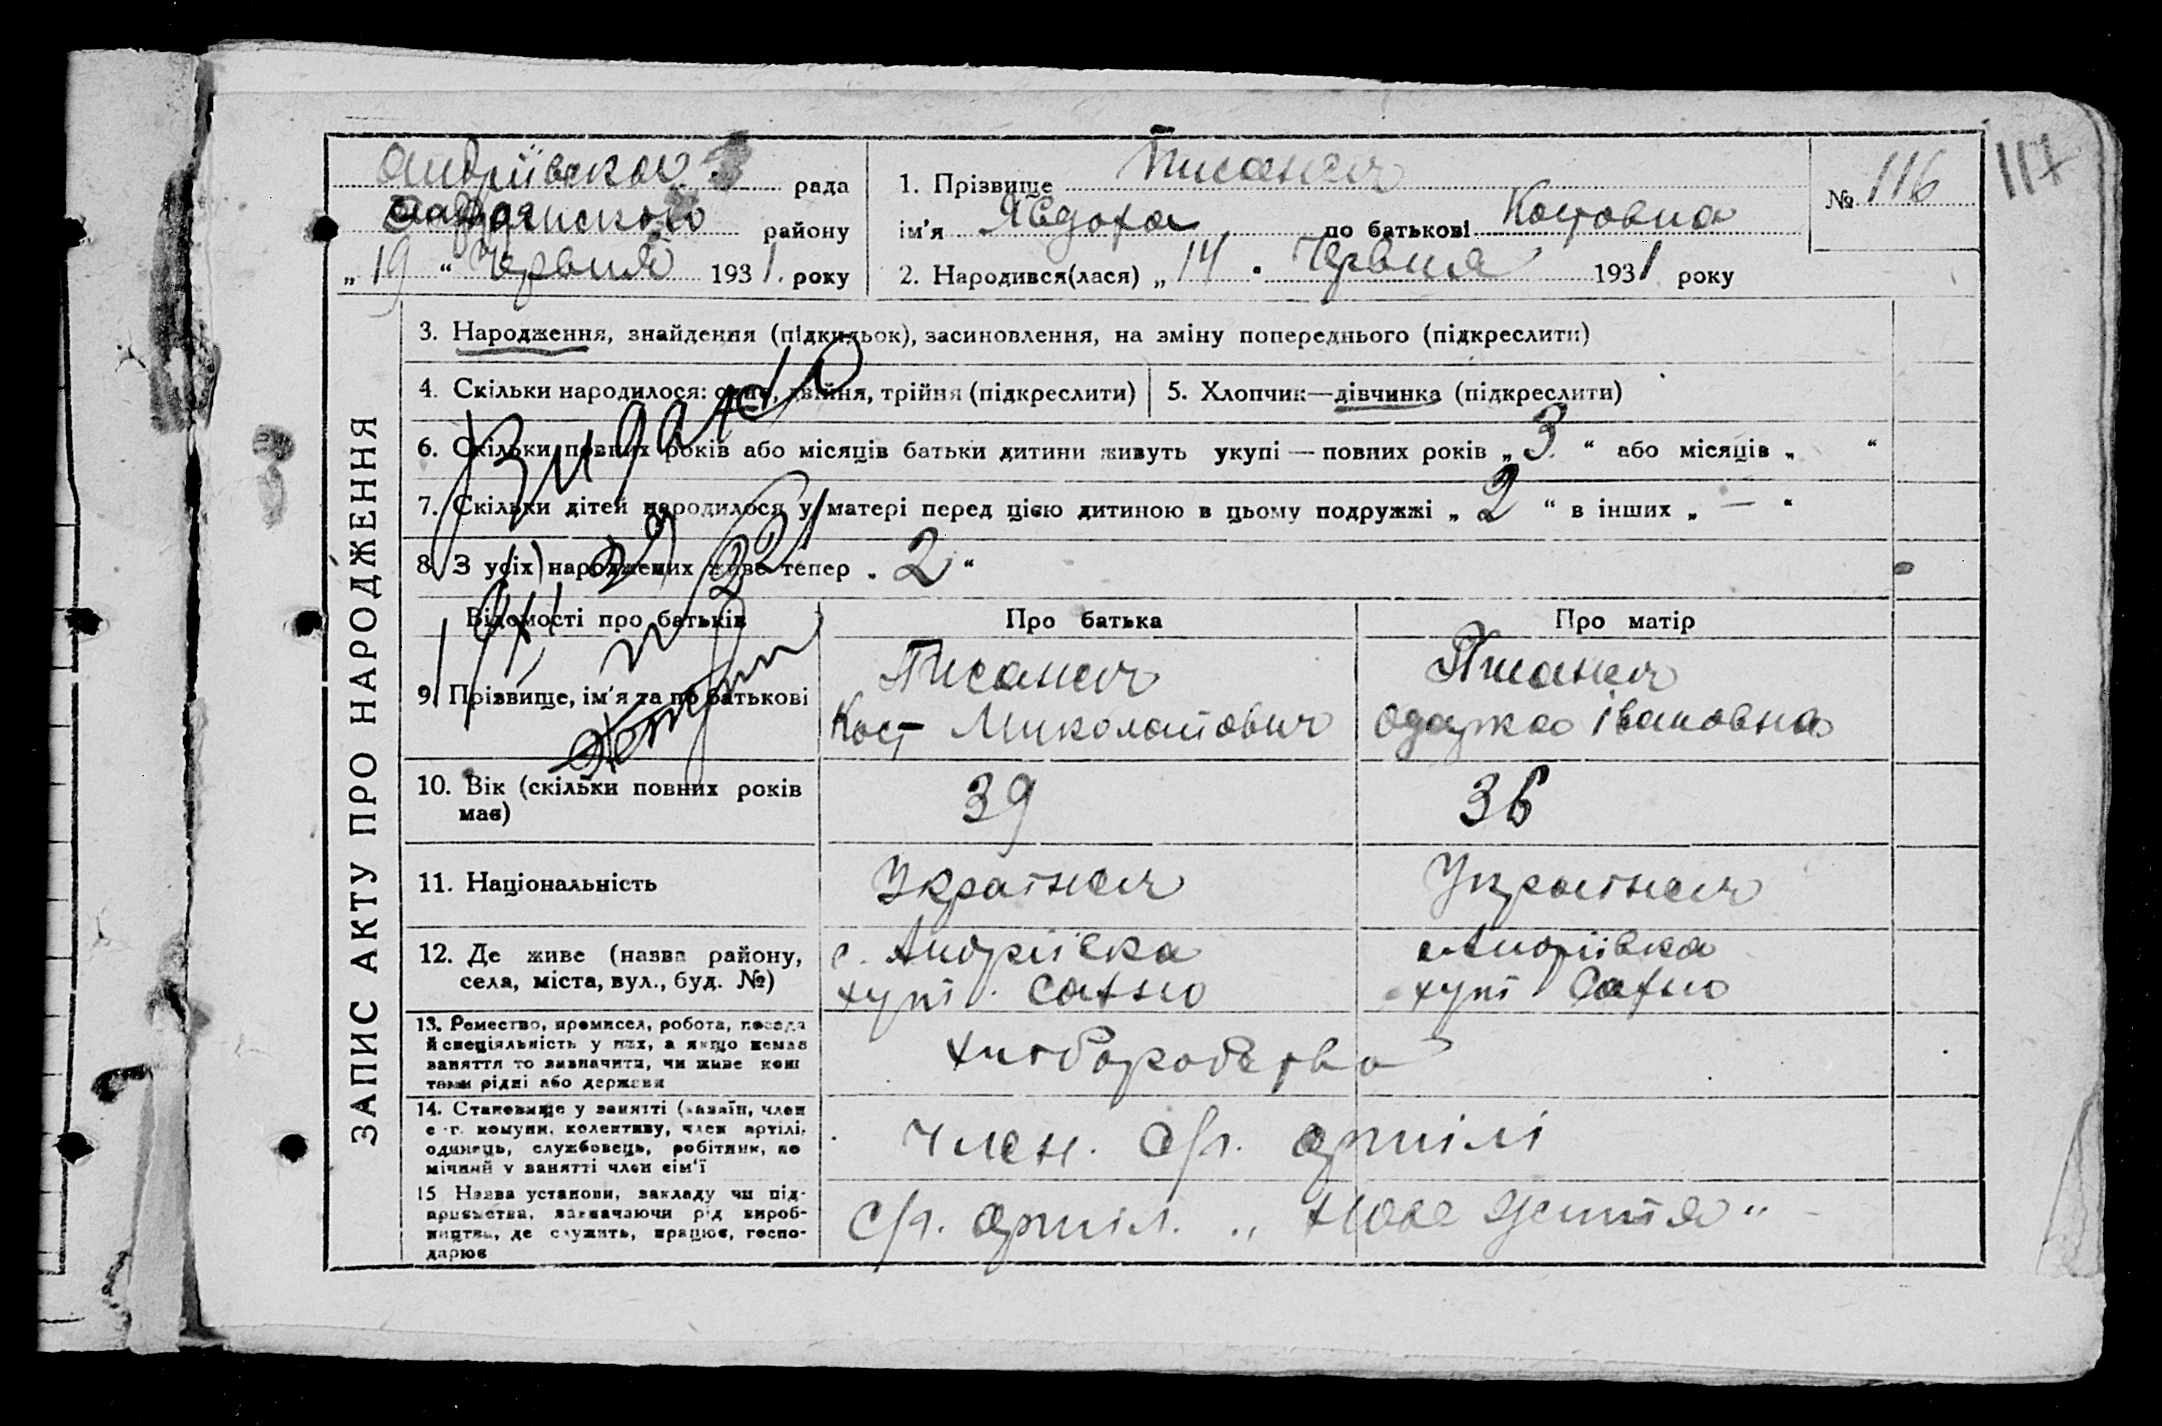 Андріївська рада
району
„19“ Червня 1931 року
1. Прізвище Писанец
ім'я Явдоха по батькові Костовна
2. Народився(лася) „14“ Червня 1931 року
№ 116
117
ЗАПИС АКТУ ПРО НАРОДЖЕННЯ
3. Народження, знайдення (підкидьок), засиновлення, на зміну попереднього (підкреслити)
4. Скільки народилося: одне, двійня, трійня (підкреслити)
5. Хлопчик—дівчинка (підкреслити)
6. Скільки повних років або місяців батьки дитини живуть укупі — повних років „3“ або місяців „ “
7. Скільки дітей народилося у матері перед цією дитиною в цьому подружжі „2“ в інших „—“
8. З усіх народжених живе тепер „2“
Відомості про батьків
Про батька
Про матір
9. Прізвище, ім'я та по батькові
Писанец
Кост Миколайович
Писанец
Одарка Івановна
10. Вік (скільки повних років має)
39
36
11. Національність
Українец
Українец
12. Де живе (назва району, села, міста, вул., буд. №)
с. Андріївка
хут.
с. Андріївка
хут
13. Ремество, промисел, робота, посада
й спеціяльність у них, а якщо немає
заняття то визначити, чи живе кош
тами рідні або держави
хліборобство
14. Становище у занятті (хазяїн, член
с.-г. комуни, колективу, член артілі,
одинець, службовець, робітник, по
мічний у занятті член сім'ї
член. с/г. артілі
15 Назва установи, закладу чи під-
приємства, зазначаючи рід вироб-
ництва, де служить, працює, госпо-
дарює
с/г. артіл. „Нове життя“